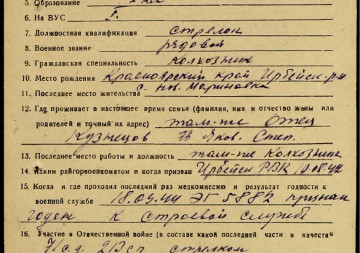 5. Образование
6. На ВУС 1.
7. Должностная квалификация стрелок
8. Военное звание рядовой
9. Гражданская специальность колхозник
10. Место рождения Красноярский край Ирбейск. р-н
с. Мариновка
11. Последнее место жительства
12. Где проживает в настоящее время семья (фамилия, имя и отчество жены или
родителей и точный их адрес) там-же Отец
Кузнецов Яков. Степ.
13. Последнее место работы и должность там-же колхозник
14. Каким райгорвоенкоматом и когда призван Ирбейск РВК
15. Когда и где проходил последний раз медкомиссию и результат годности к
военной службе 18.09.44 ЭГ 5882 признан
годен к строевой службе
16. Участие в Отечественной войне (в составе какой последней части в качестве
стрелком